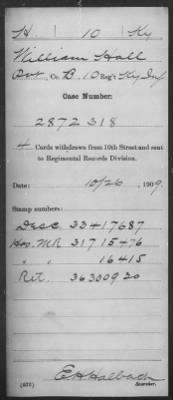 H. 10 Ky
William Hall
Pvt, Co. B. 10 Reg't Ky Inf
Case Number:
2872318
4 Cards withdrawn from 10th Street and sent
to Regimental Records Division.
Date: 10/26, 1909.
Stamp numbers:
Desc 33417687
Hos. MR 31715476
" " 16415
Ret. 36330920
EHHalbach
Searcher.
(672)